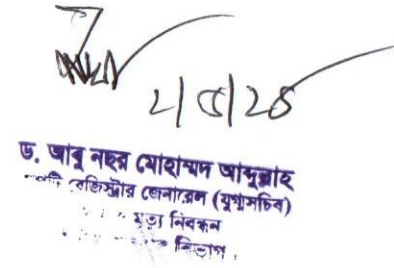 ২/৫/২৫
ড. আবু নছর মোহাম্মদ আব্দুল্লাহ
রেজিস্ট্রার জেনারেল (যুগ্মসচিব)
মৃত্যু নিবন্ধন
বিভাগ